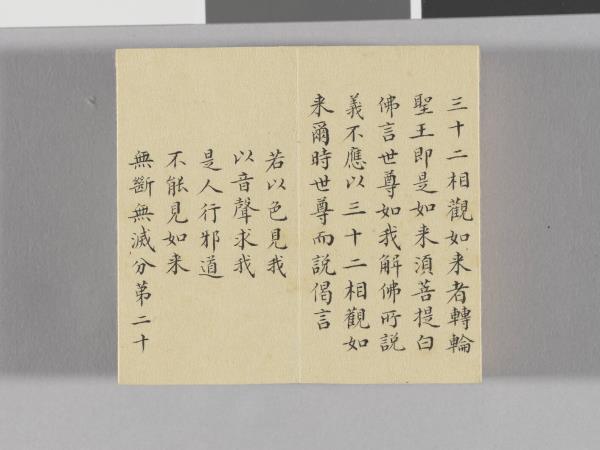 三十二相觀如来者轉輪
聖王即是如来湏菩提白
佛言世尊如我解佛所説
義不應以三十二相觀如
来爾時世尊而説偈言
若以色見我
以音聲求我
是人行邪道
不能見如来
無斷無滅分第二十